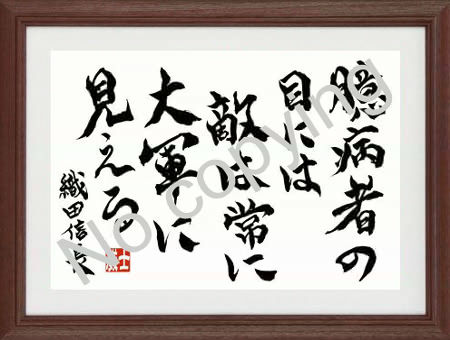 臆病者の
目には
敵は常に
大軍に
見える
織田信長
No copying